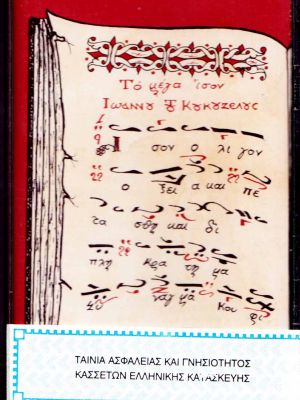 Τό μεγα ἴσον
Ἰωαννου τ Κουκουζελους
Ι σον ο λι γον
ο ξει α και πε
τα σθη και δι
πλη κρα τη μα
κου φι
ΤΑΙΝΙΑ ΑΣΦΑΛΕΙΑΣ ΚΑΙ ΓΝΗΣΙΟΤΗΤΟΣ
ΚΑΣΣΕΤΩΝ ΕΛΛΗΝΙΚΗΣ ΚΑΤΑΣΚΕΥΗΣ